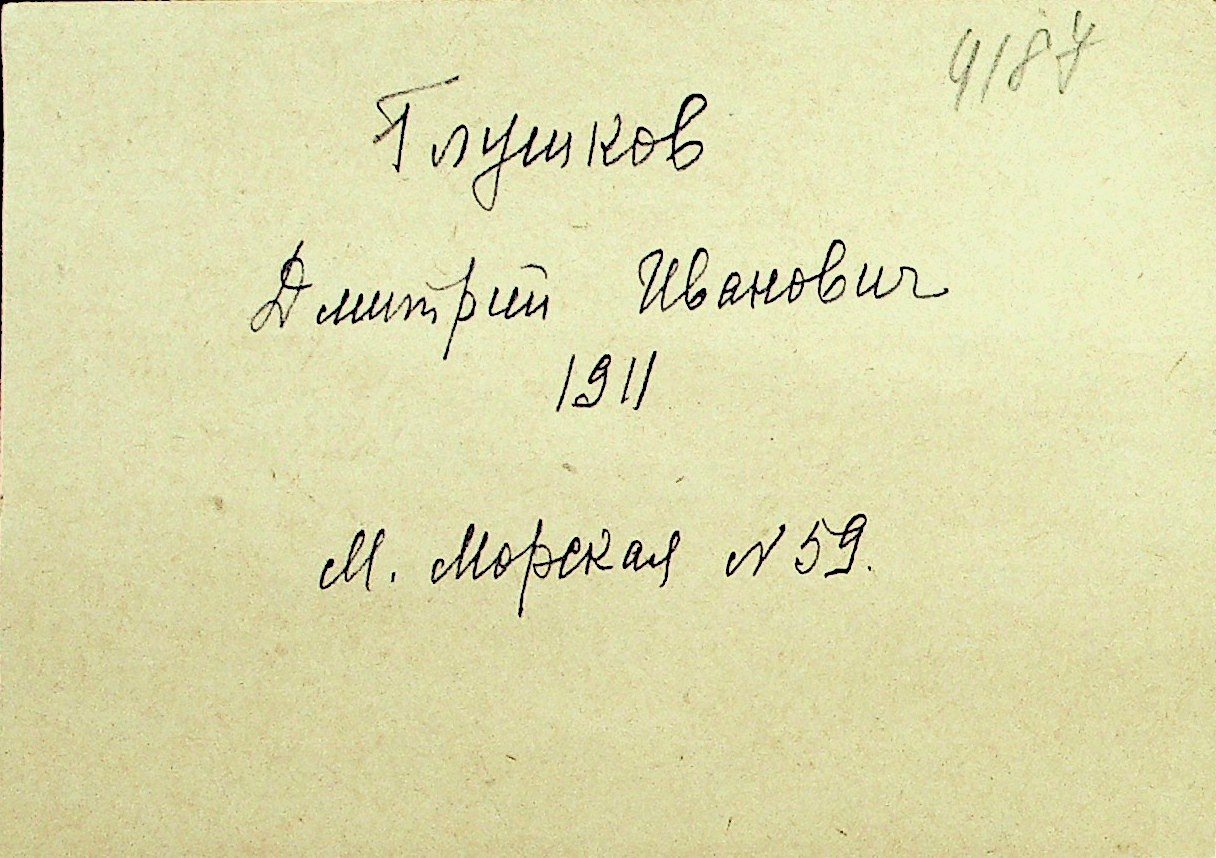 4187
Глушков
Дмитрий Иванович
1911
М. Морская N 59.